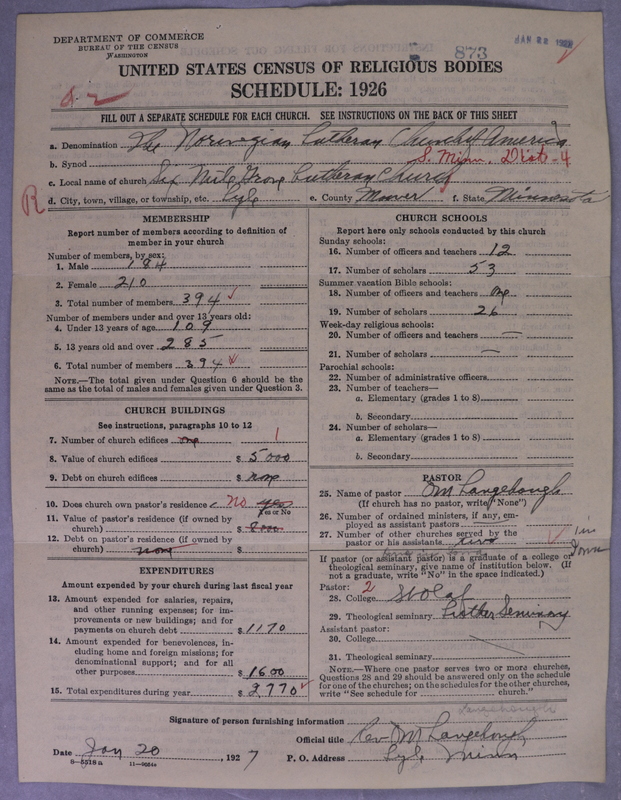 DEPARTMENT OF COMMERCE
BUREAU OF THE CENSUS
WASHINGTON
873
JAN 22 1927
UNITED STATES CENSUS OF RELIGIOUS BODIES
SCHEDULE: 1926
FILL OUT A SEPARATE SCHEDULE FOR EACH CHURCH. SEE INSTRUCTIONS ON THE BACK OF THIS SHEET
a. Denomination The Norwegian Lutheran Church of America
b. Synod S. Minn. Dist-4
c. Local name of church Six Mile Grove Lutheran Church
R
d. City, town, village, or township, etc. Lyle e. County Mower f. State Minnesota
MEMBERSHIP
Report number of members according to definition of
member in your church
Number of members, by sex:
1. Male 184
2. Female 210
3. Total number of members 394
Number of members under and over 13 years old:
4. Under 13 years of age 109
5. 13 years old and over 285
6. Total number of members 394
NOTE.—The total given under Question 6 should be the
same as the total of males and females given under Question 3.
CHURCH BUILDINGS
See instructions, paragraphs 10 to 12
7. Number of church edifices one 1
8. Value of church edifices $ 5000
9. Debt on church edifices $ none
10. Does church own pastor's residence No yes
Yes or No
11. Value of pastor's residence (if owned by
church) $ 8000
12. Debt on pastor's residence (if owned by
church) none $
EXPENDITURES
Amount expended by your church during last fiscal year
13. Amount expended for salaries, repairs,
and other running expenses; for im-
provements or new buildings; and for
payments on church debt $ 1170
14. Amount expended for benevolences, in-
cluding home and foreign missions; for
denominational support; and for all
other purposes $ 1600
15. Total expenditures during year $ 2770
CHURCH SCHOOLS
Report here only schools conducted by this church
Sunday schools:
16. Number of officers and teachers 12
17. Number of scholars 53
Summer vacation Bible schools:
18. Number of officers and teachers one
19. Number of scholars 26
Week-day religious schools:
20. Number of officers and teachers —
21. Number of scholars —
Parochial schools:
22. Number of administrative officers
23. Number of teachers—
a. Elementary (grades 1 to 8)
b. Secondary
24. Number of scholars—
a. Elementary (grades 1 to 8)
b. Secondary
PASTOR
25. Name of pastor OM Langehough
(If church has no pastor, write "None")
26. Number of ordained ministers, if any, em-
ployed as assistant pastors
27. Number of other churches served by the
pastor or his assistants two
in Iowa
If pastor (or assistant pastor) is a graduate of a college or
theological seminary, give name of institution below. (If
not a graduate, write "No" in the space indicated.)
Pastor: 2
28. College St Olaf
29. Theological seminary Luther Seminary
Assistant pastor:
30. College
31. Theological seminary
NOTE.—Where one pastor serves two or more churches,
Questions 28 and 29 should be answered only on the schedule
for one of the churches; on the schedules for the other churches,
write "See schedule for church."
Langehough
Signature of person furnishing information
Official title Rev OM Langehough
Date Jan 20, 1927 P. O. Address Lyle Minn
8-5518 a